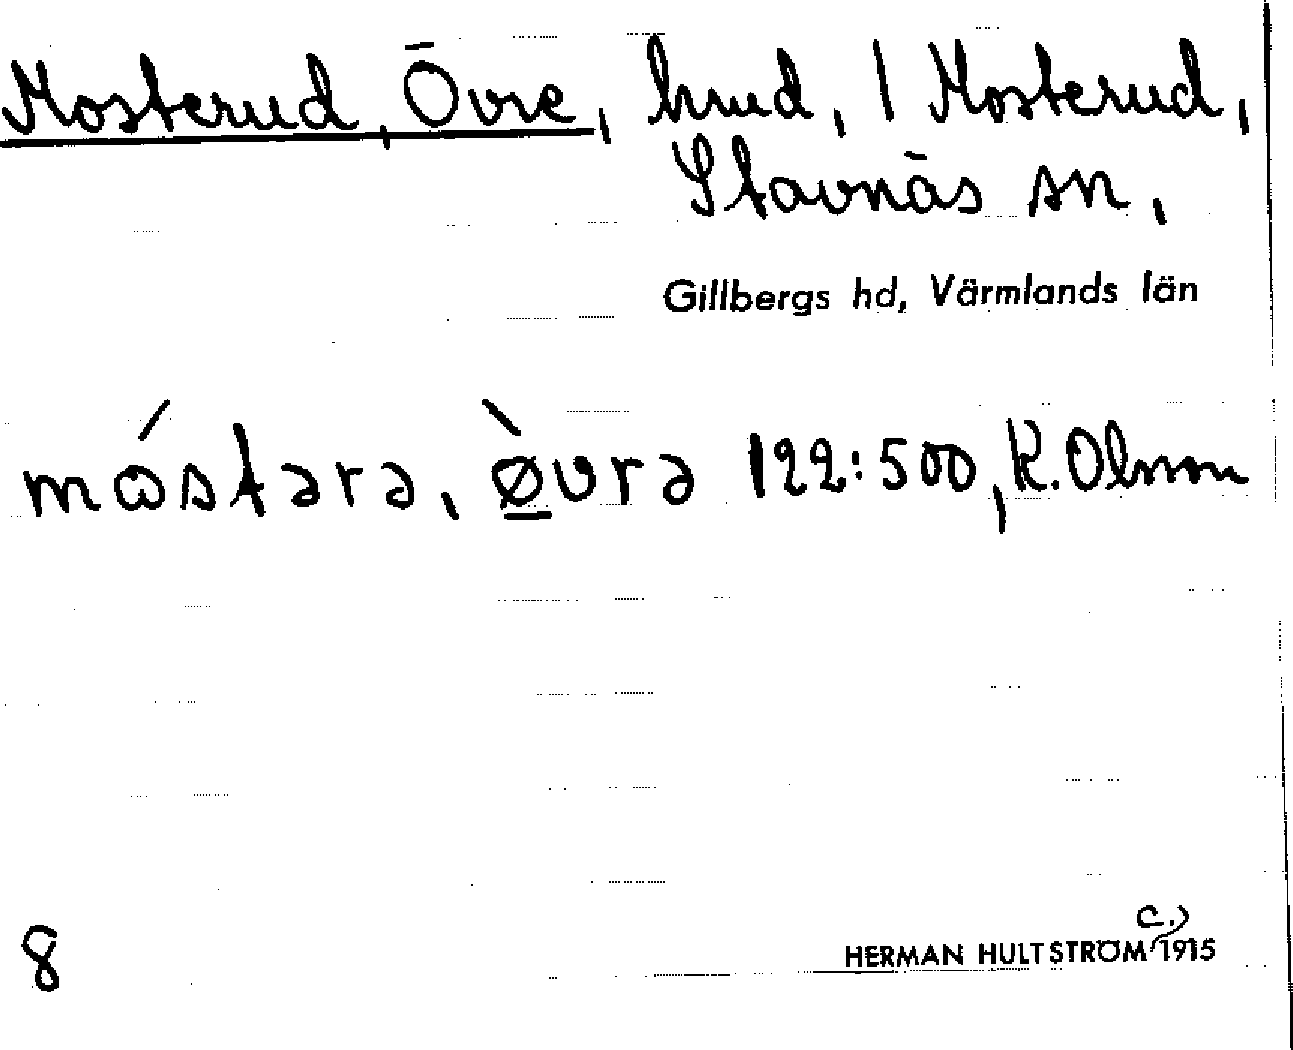 Mosterud, Övre, hmd, 1 Mosterud,
Stavnäs sn,
Gillbergs hd, Värmlands län
móstərə, ø̱̀vrə 122:500, K. Olsson
8
c.)
HERMAN HULTSTRÖM 1915